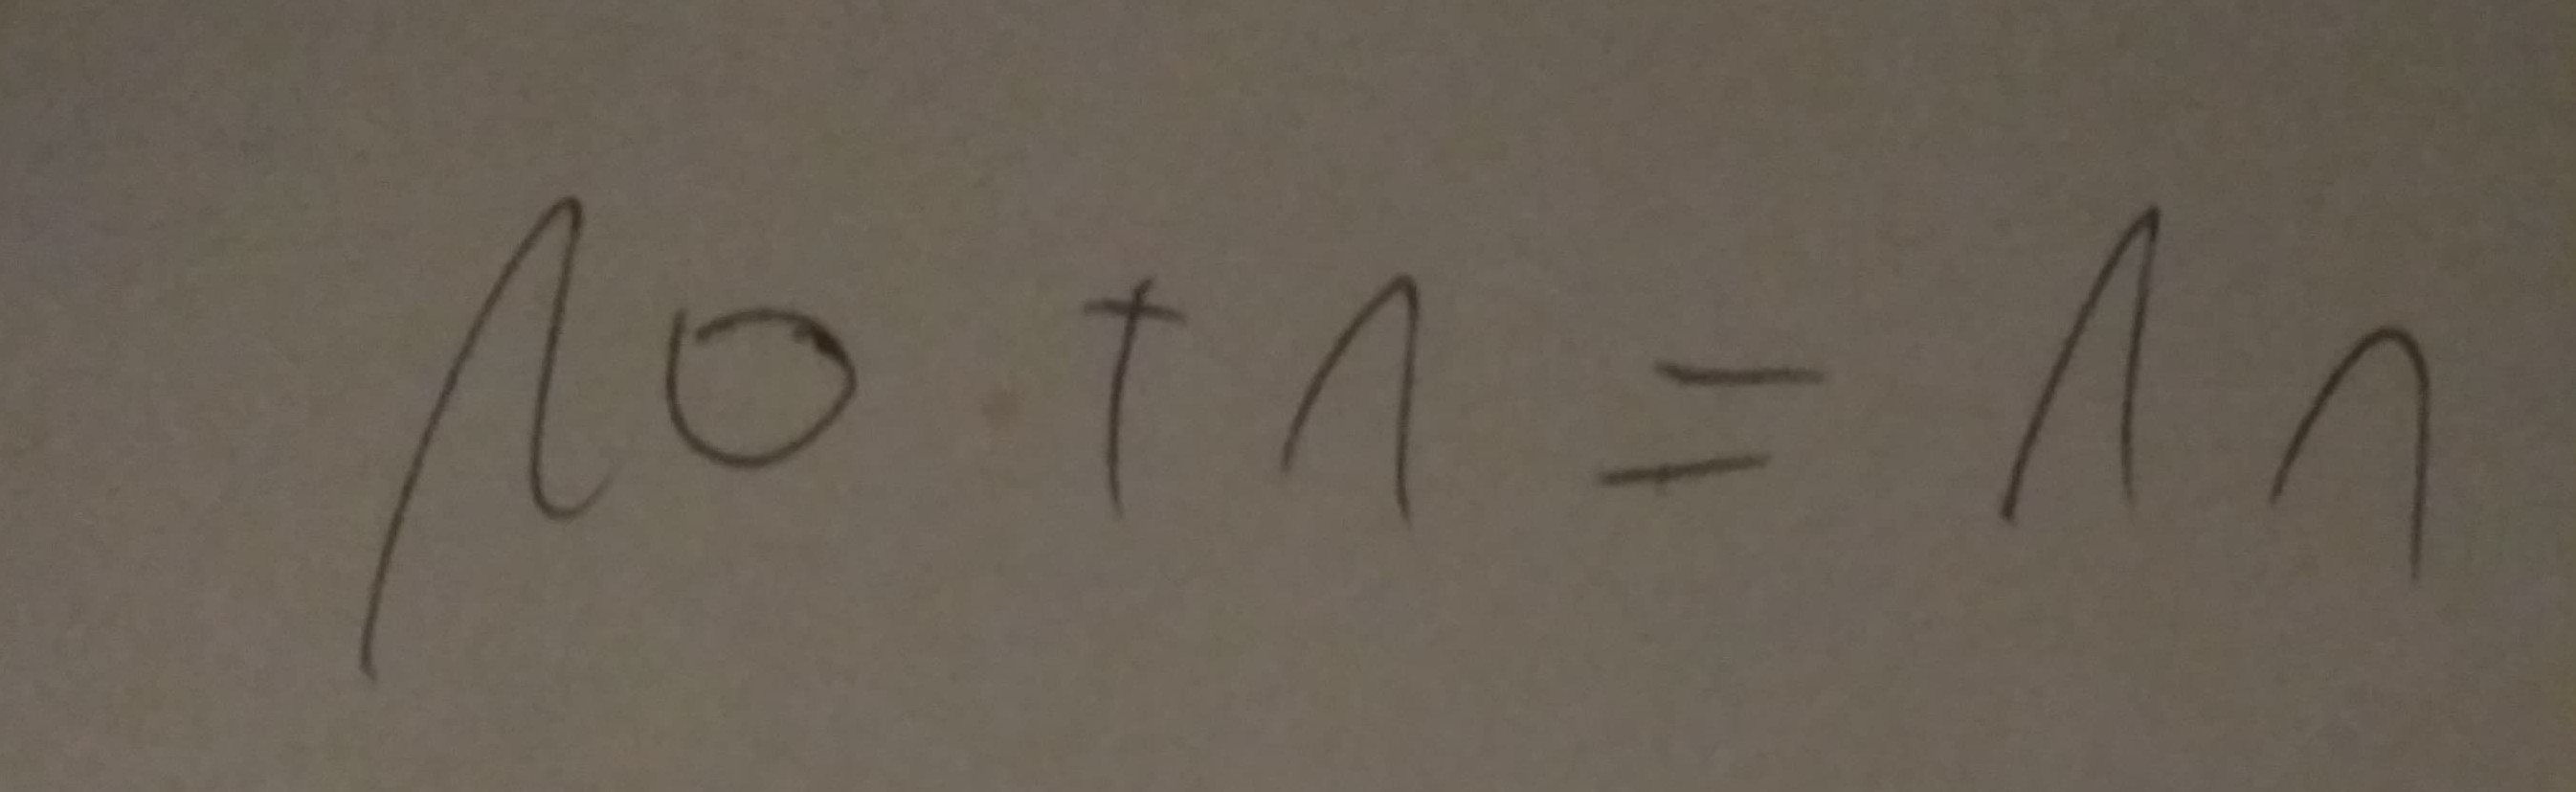 10 + 1 = 11